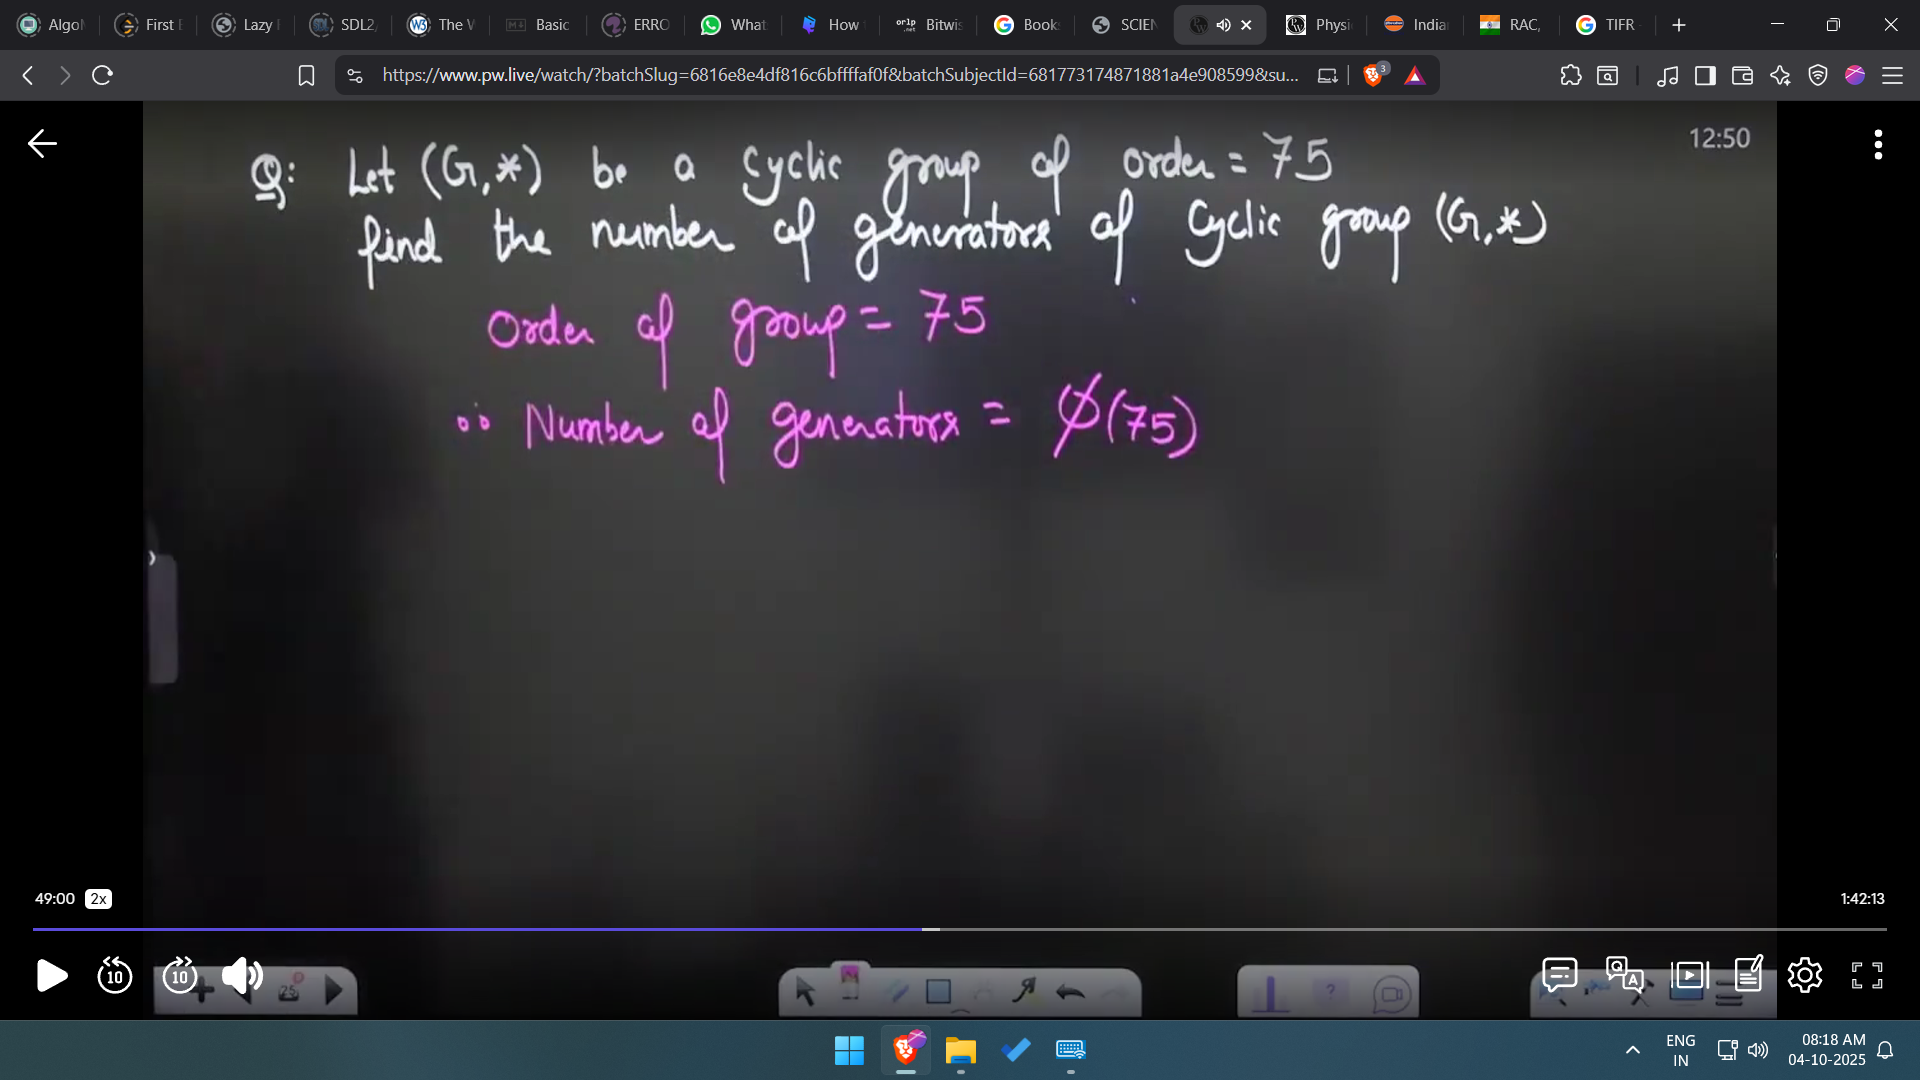 Algo First E Lazy SDL2, The W Basic ERRO What How Bitwis Book SCIEN Physi India RAC, TIFR
https://www.pw.live/watch/?batchSlug=6816e8e4df816c6bffffaf0f&batchSubjectId=681773174871881a4e908599&su... 3
12:50
Q: Let (G,*) be a cyclic group of order = 75
find the number of generators of Cyclic group (G,*)
Order of group = 75
∴ Number of generators = ϕ(75)
49:00 2x 1:42:13
10 10 25
ENG 08:18 AM
IN 04-10-2025